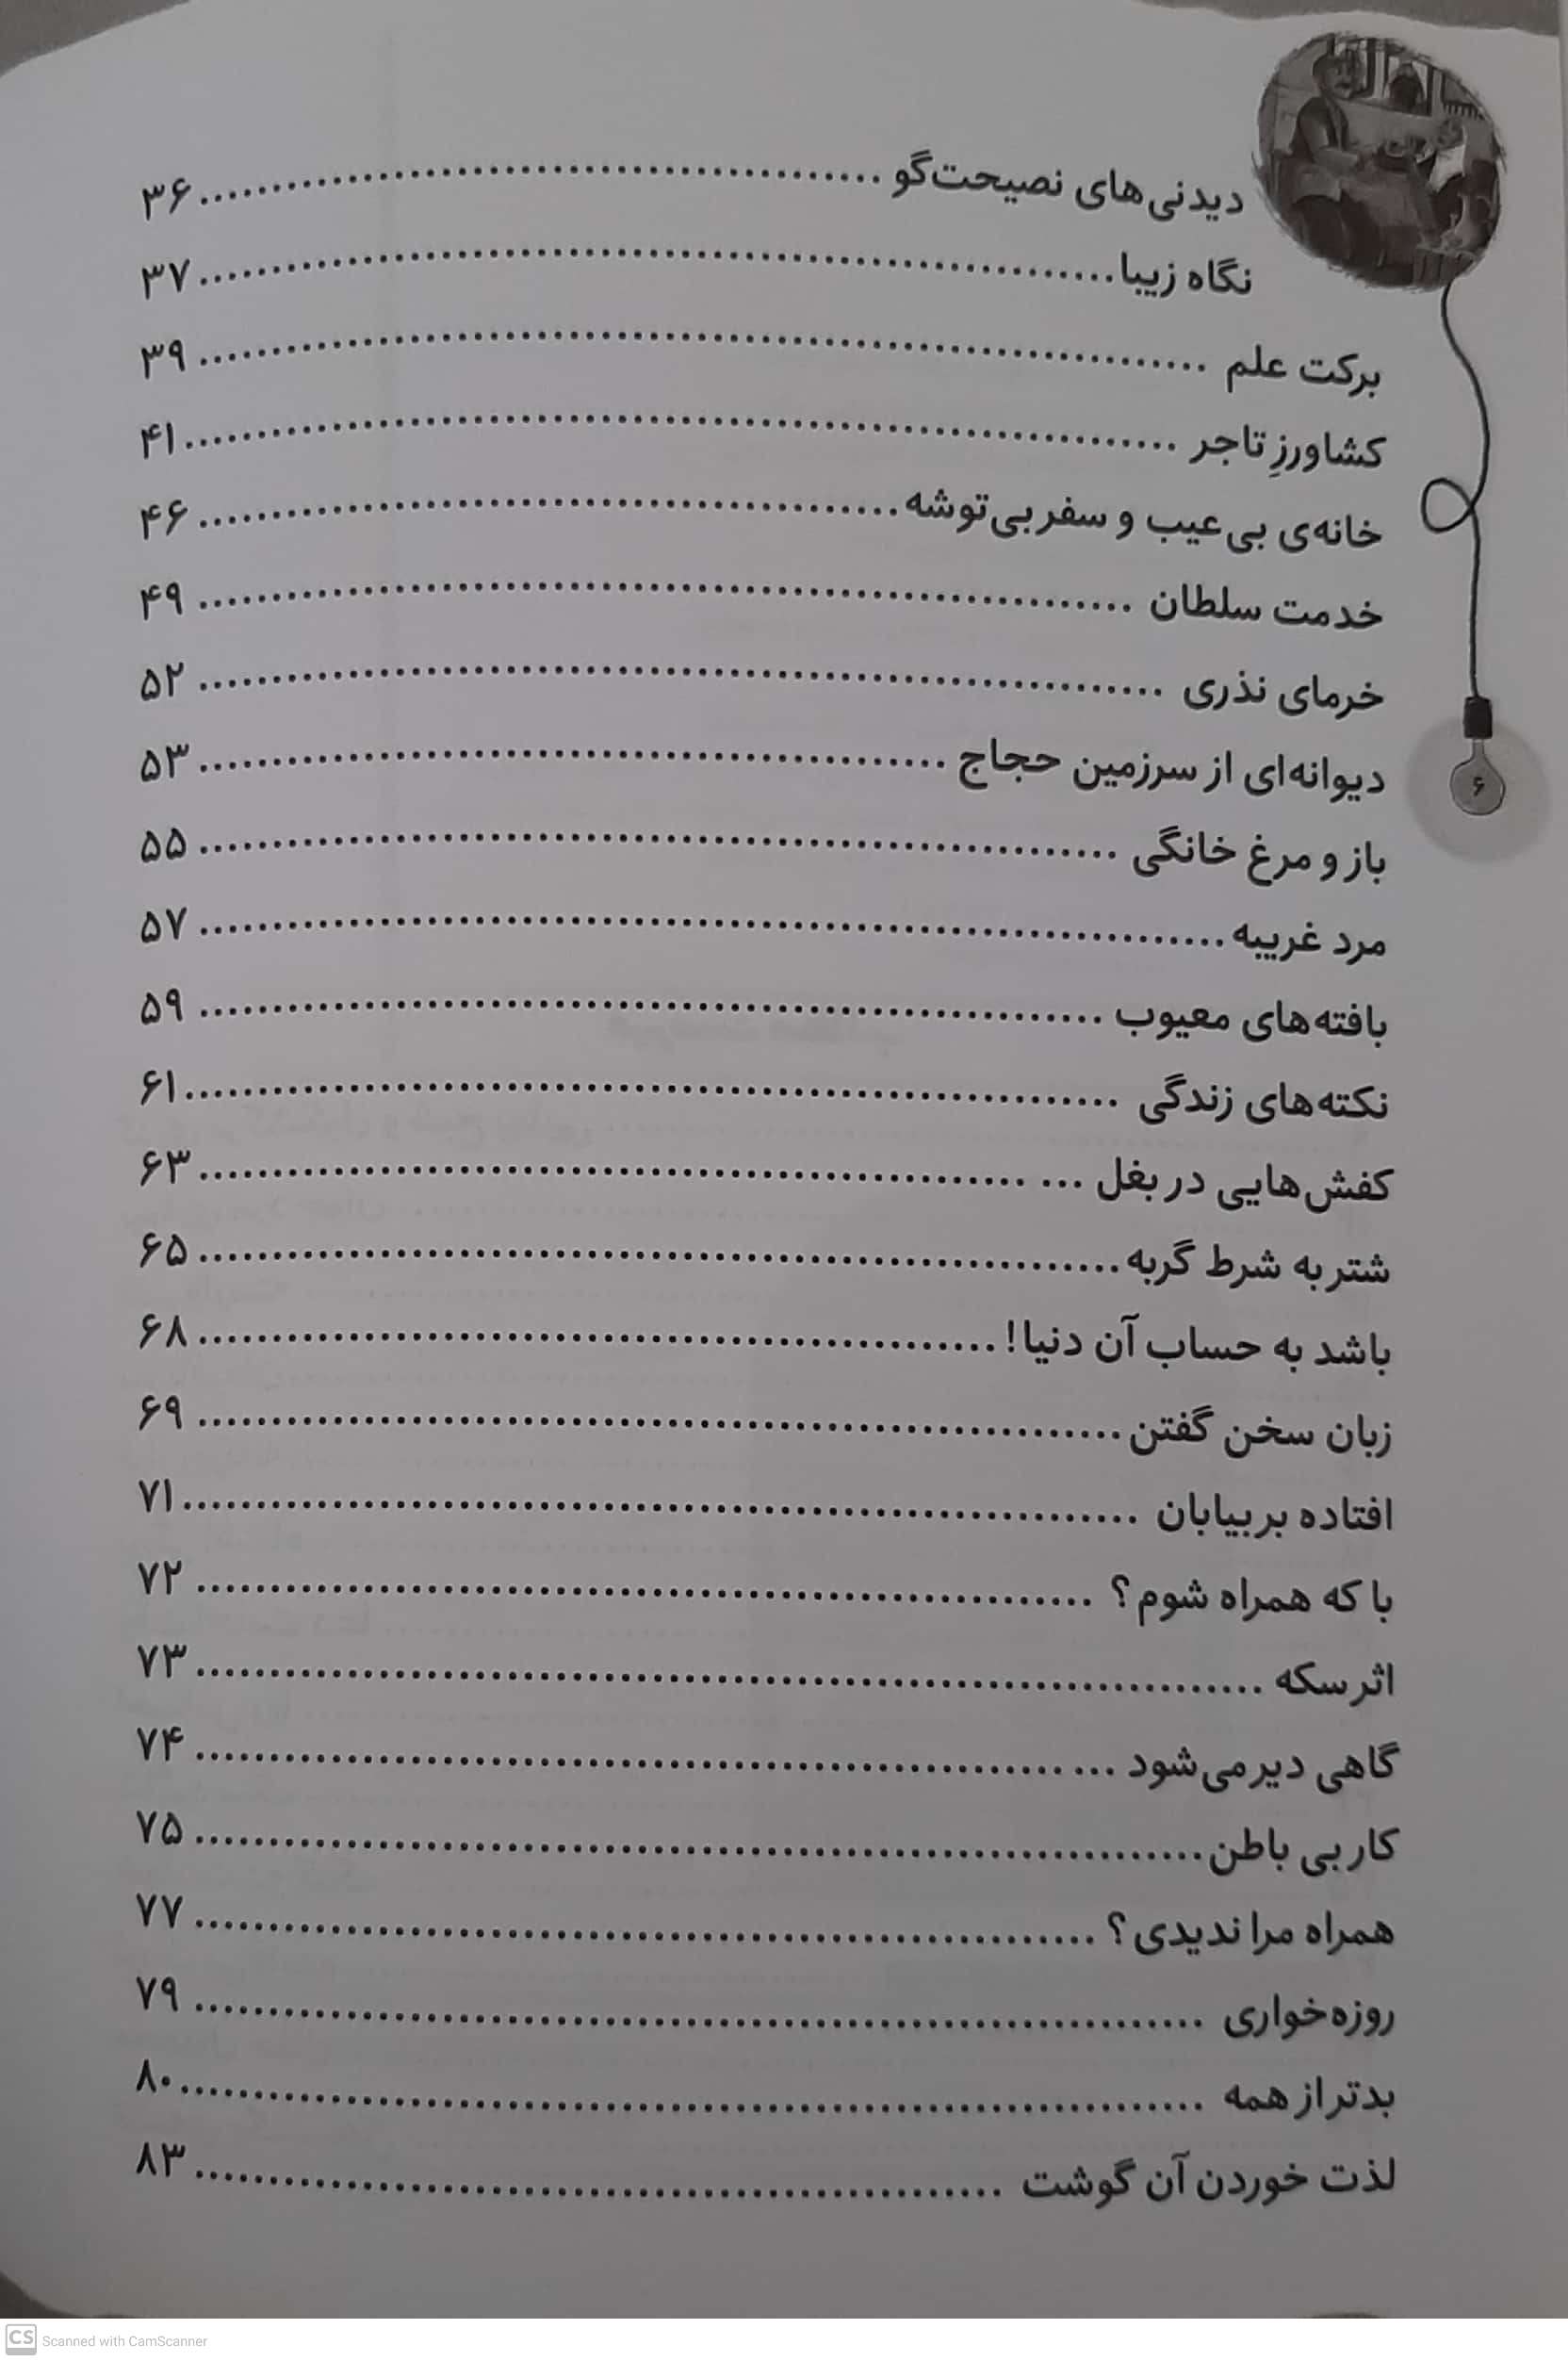 دیدنی‌های نصیحت‌گو ........ ۳۶
نگاه زیبا ........ ۳۷
برکت علم ........ ۳۹
کشاورزِ تاجر ........ ۴۱
خانه‌ی بی‌عیب و سفر بی‌توشه ........ ۴۶
خدمت سلطان ........ ۴۹
خرمای نذری ........ ۵۲
دیوانه‌ای از سرزمین حجاج ........ ۵۳
۶
باز و مرغ خانگی ........ ۵۵
مرد غریبه ........ ۵۷
بافته‌های معیوب ........ ۵۹
نکته‌های زندگی ........ ۶۱
کفش‌هایی در بغل ... ........ ۶۳
شتر به شرط گربه ........ ۶۵
باشد به حساب آن دنیا! ........ ۶۸
زبان سخن گفتن ........ ۶۹
افتاده بر بیابان ........ ۷۱
با که همراه شوم؟ ........ ۷۲
اثر سکه ........ ۷۳
گاهی دیر می‌شود ... ........ ۷۴
کار بی باطن ........ ۷۵
همراه مرا ندیدی؟ ........ ۷۷
روزه‌خواری ........ ۷۹
بدتر از همه ........ ۸۰
لذت خوردن آن گوشت ........ ۸۳
CS Scanned with CamScanner